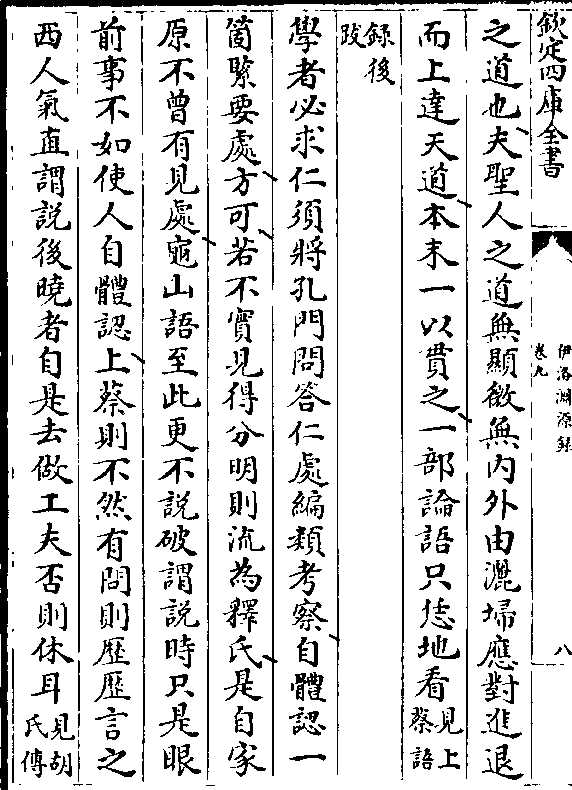 欽定四庫全書
伊洛淵源録
卷九
八
之道也夫聖人之道無顯微無内外由灑埽應對進退
而上達天道本末一以貫之一部論語只恁地看見上蔡語
録後跋
學者必求仁須將孔門問答仁處編類考察自體認一
箇緊要處方可若不實見得分明則流為釋氏是自家
原不曽有見處龜山語至此更不説破謂説時只是眼
前事不如使人自體認上蔡則不然有問則歷歷言之
西人氣直謂説後曉者自是去做工夫否則休耳見胡氏傳